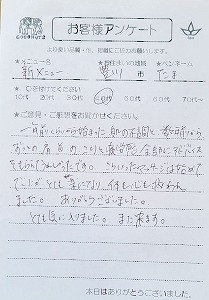 COCONUTS
お客様アンケート
より良い品質・術、接客に口コミお願いします。
★メニュー名 ★お住まいの地域 ★ペンネーム
新メニュー 豊川 市 たま
★○を付けてください
10代 20代 30代 40代 50代 60代 70代～
★ご意見・ご感想をお聞かせください。
一年前くらいから始まった肌の不調と 数年前から
おこった肩首のこりと
をもらえてうれしかったです。こういったマッサージは初めて
でしたがとても 楽になり 体も心も救われ
ました。 ありがとうございました。
とても気に入りました。また来ます。
本日はありがとうございました。